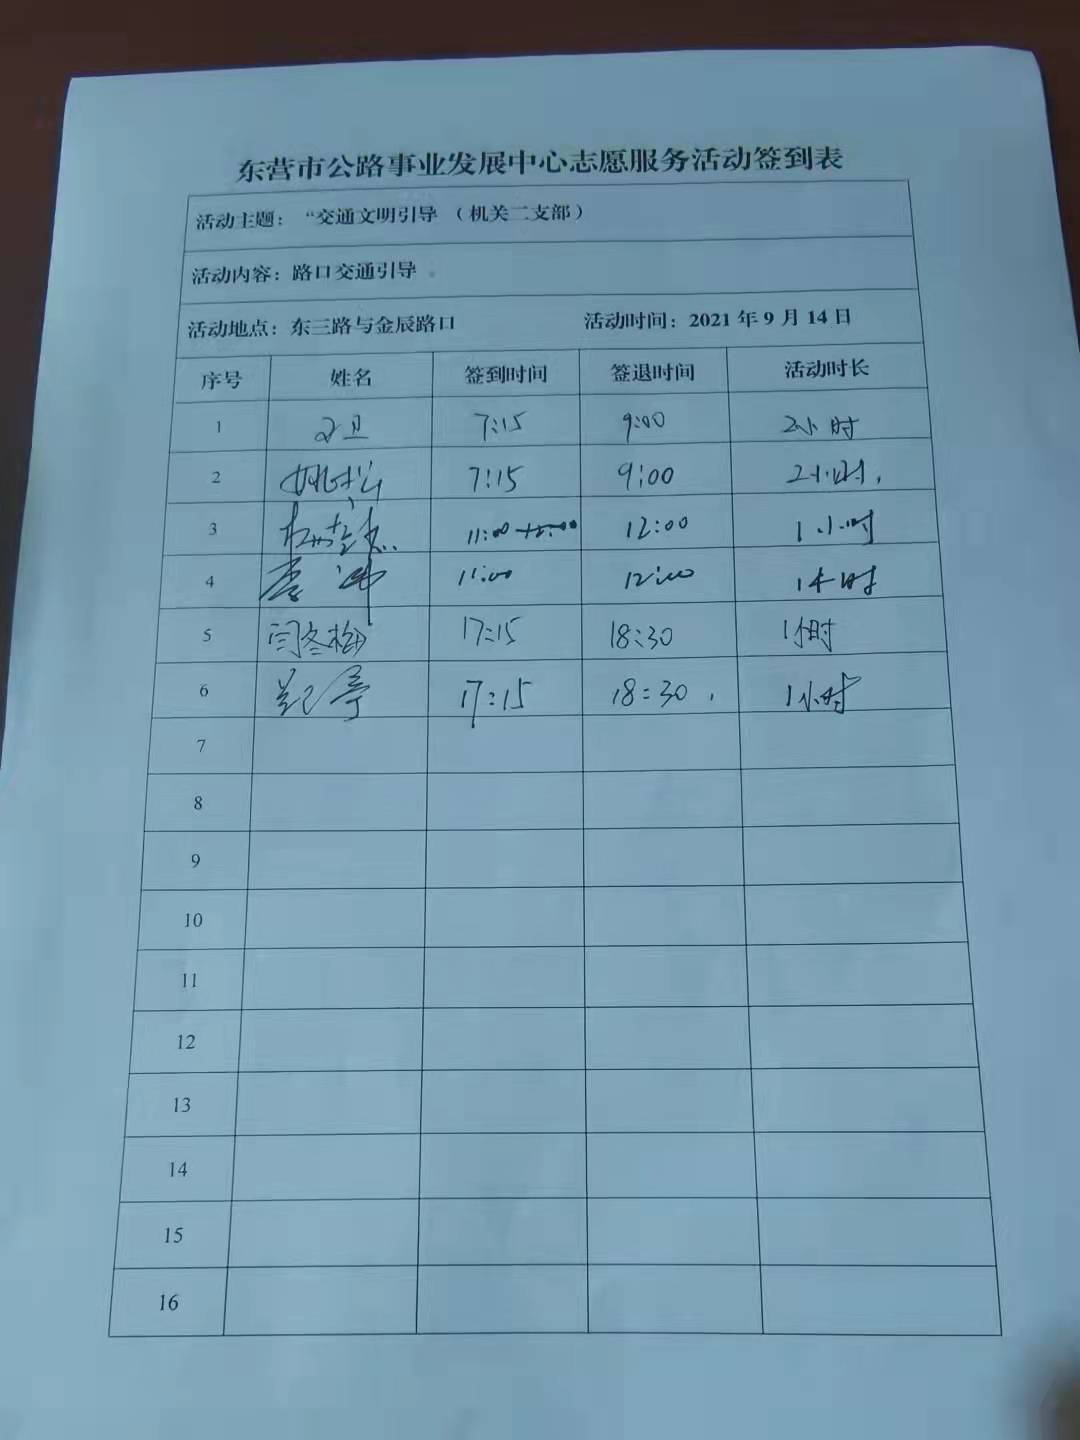 东营市公路事业发展中心志愿服务活动签到表
活动主题："交通文明引导（机关二支部）
活动内容：路口交通引导
活动地点：东三路与金辰路口 活动时间：2021年9月14日
序号 姓名 签到时间 签退时间 活动时长
1 7:15 9:00 2小时
2 7:15 9:00 2小时.
3 11:00 12:00 1小时
4 11:00 12:00 1小时
5 闫冬梅 17:15 18:30 1小时
6 17:15 18:30. 1小时
7
8
9
10
11
12
13
14
15
16